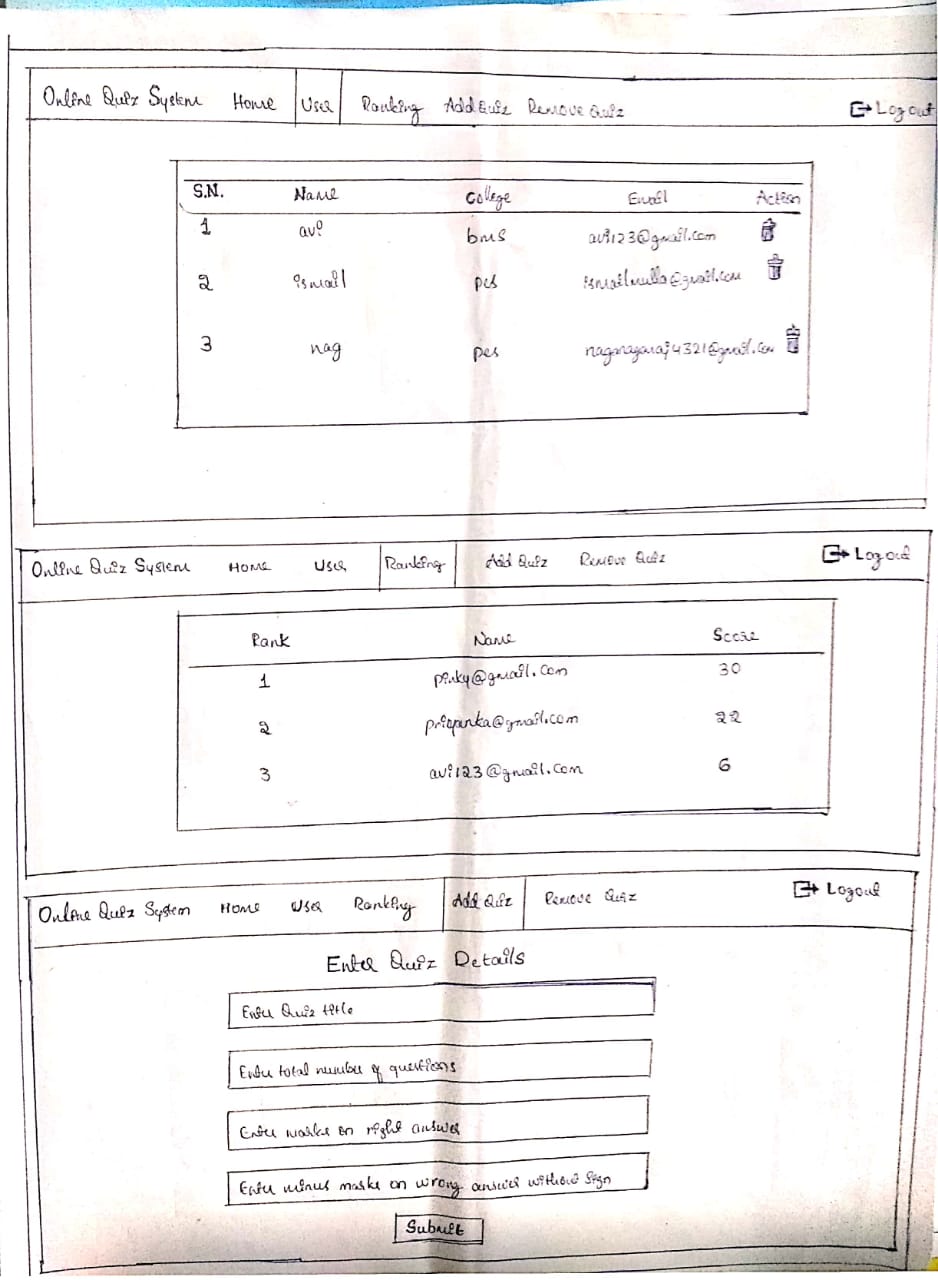 Online Quiz System Home User Ranking Add Quiz Remove Quiz Logout
S.N. Name College Email Action
1 avi bms avi123@gmail.com
2 ismail pes ismailmulla@gmail.com
3 nag pes naganagaraj4321@gmail.com
Online Quiz System Home User Ranking Add Quiz Remove Quiz Logout
Rank Name Score
1 pinky@gmail.com 30
2 priyanka@gmail.com 22
3 avi123@gmail.com 6
Online Quiz System Home User Ranking Add Quiz Remove Quiz Logout
Enter Quiz Details
Enter Quiz title
Enter total number of questions
Enter marks on right answer
Enter minus marks on wrong answer without sign
Submit